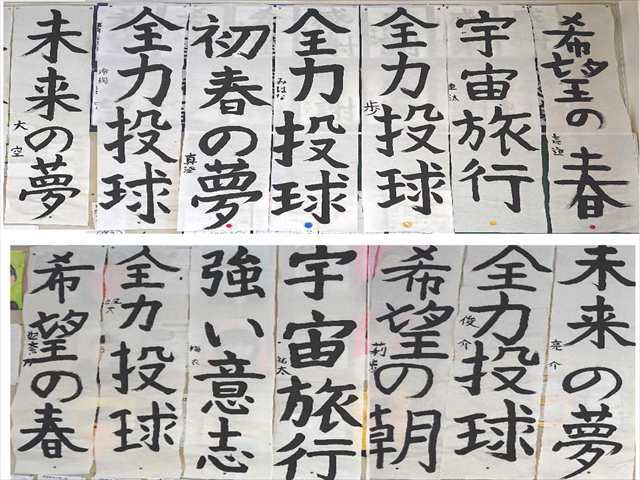 希望の春
宇宙旅行
全力投球
歩
全力投球
みはな
初春の夢
真澄
全力投球
未来の夢
大空
未来の夢
亮介
全力投球
俊介
希望の朝
宇宙旅行
祐太
強い意志
全力投球
希望の春